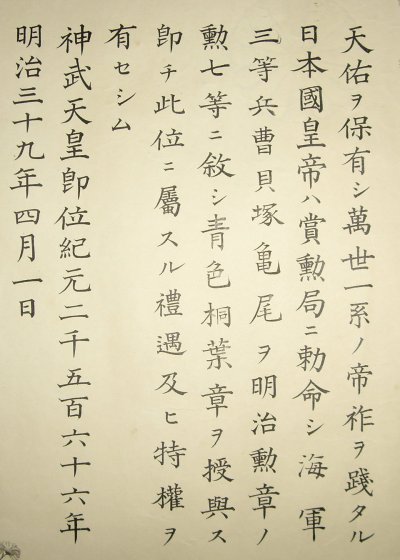 天佑ヲ保有シ萬世一系ノ帝祚ヲ踐タル
日本國皇帝ハ賞勲局ニ勅命シ海軍
三等兵曹貝塚亀尾ヲ明治勲章ノ
勲七等ニ敘シ青色桐葉章ヲ授與ス
卽チ此位ニ屬スル禮遇及ヒ特權ヲ
有セシム
神武天皇卽位紀元二千五百六十六年
明治三十九年四月一日